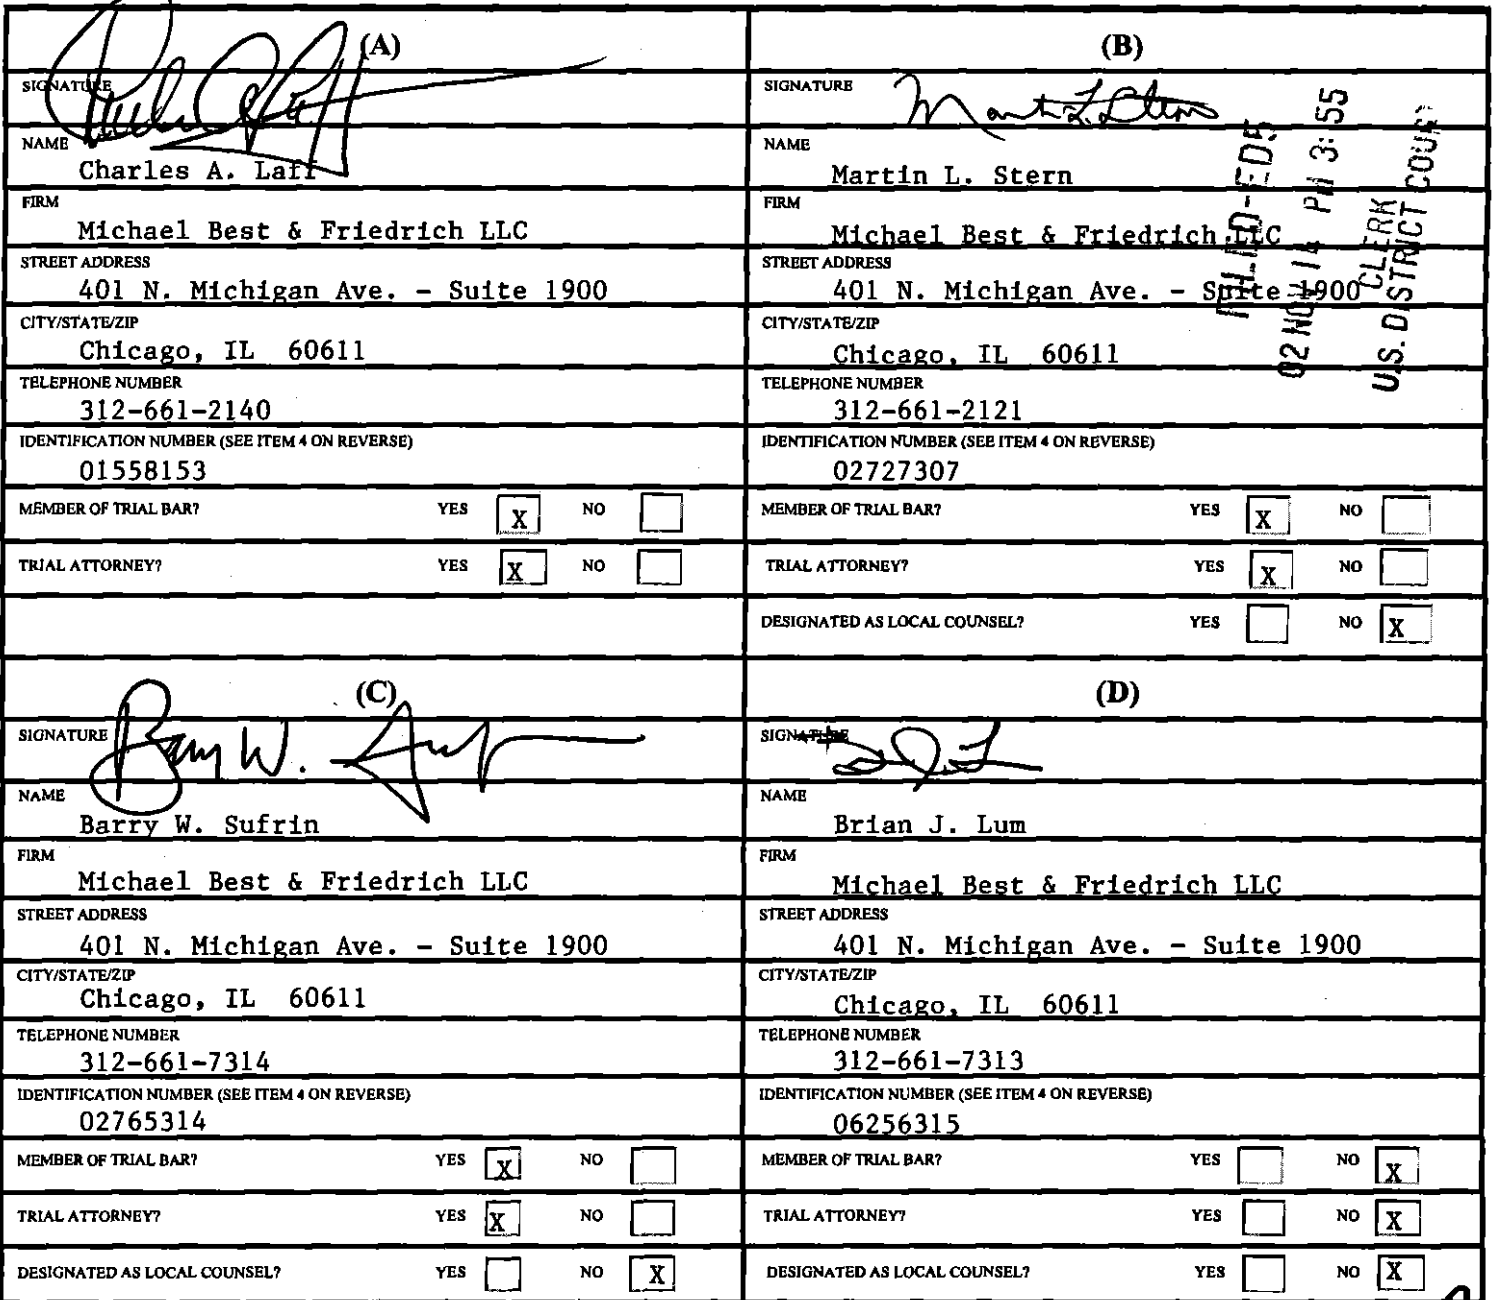 (A)
SIGNATURE
NAME
Charles A. Laff
FIRM
Michael Best & Friedrich LLC
STREET ADDRESS
401 N. Michigan Ave. - Suite 1900
CITY/STATE/ZIP
Chicago, IL 60611
TELEPHONE NUMBER
312-661-2140
IDENTIFICATION NUMBER (SEE ITEM 4 ON REVERSE)
01558153
MEMBER OF TRIAL BAR? YES X NO
TRIAL ATTORNEY? YES X NO
(B)
SIGNATURE Martin L. Stern
NAME
Martin L. Stern
FIRM
Michael Best & Friedrich LLC
STREET ADDRESS
401 N. Michigan Ave. - Suite 1900
CITY/STATE/ZIP
Chicago, IL 60611
TELEPHONE NUMBER
312-661-2121
IDENTIFICATION NUMBER (SEE ITEM 4 ON REVERSE)
02727307
MEMBER OF TRIAL BAR? YES X NO
TRIAL ATTORNEY? YES X NO
DESIGNATED AS LOCAL COUNSEL? YES NO X
02 NOV 14 PM 3:55
CLERK
U.S. DISTRICT COURT
(C)
SIGNATURE Barry W.
NAME
Barry W. Sufrin
FIRM
Michael Best & Friedrich LLC
STREET ADDRESS
401 N. Michigan Ave. - Suite 1900
CITY/STATE/ZIP
Chicago, IL 60611
TELEPHONE NUMBER
312-661-7314
IDENTIFICATION NUMBER (SEE ITEM 4 ON REVERSE)
02765314
MEMBER OF TRIAL BAR? YES X NO
TRIAL ATTORNEY? YES X NO
DESIGNATED AS LOCAL COUNSEL? YES NO X
(D)
SIGNATURE
NAME
Brian J. Lum
FIRM
Michael Best & Friedrich LLC
STREET ADDRESS
401 N. Michigan Ave. - Suite 1900
CITY/STATE/ZIP
Chicago, IL 60611
TELEPHONE NUMBER
312-661-7313
IDENTIFICATION NUMBER (SEE ITEM 4 ON REVERSE)
06256315
MEMBER OF TRIAL BAR? YES NO X
TRIAL ATTORNEY? YES NO X
DESIGNATED AS LOCAL COUNSEL? YES NO X